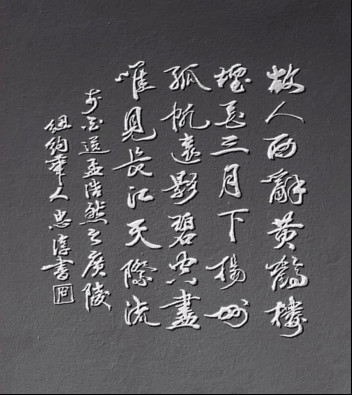 故人西辭黃鶴樓
煙花三月下揚州
孤帆遠影碧空盡
唯見長江天際流
李白送孟浩然之廣陵
紐約華人忠淳書